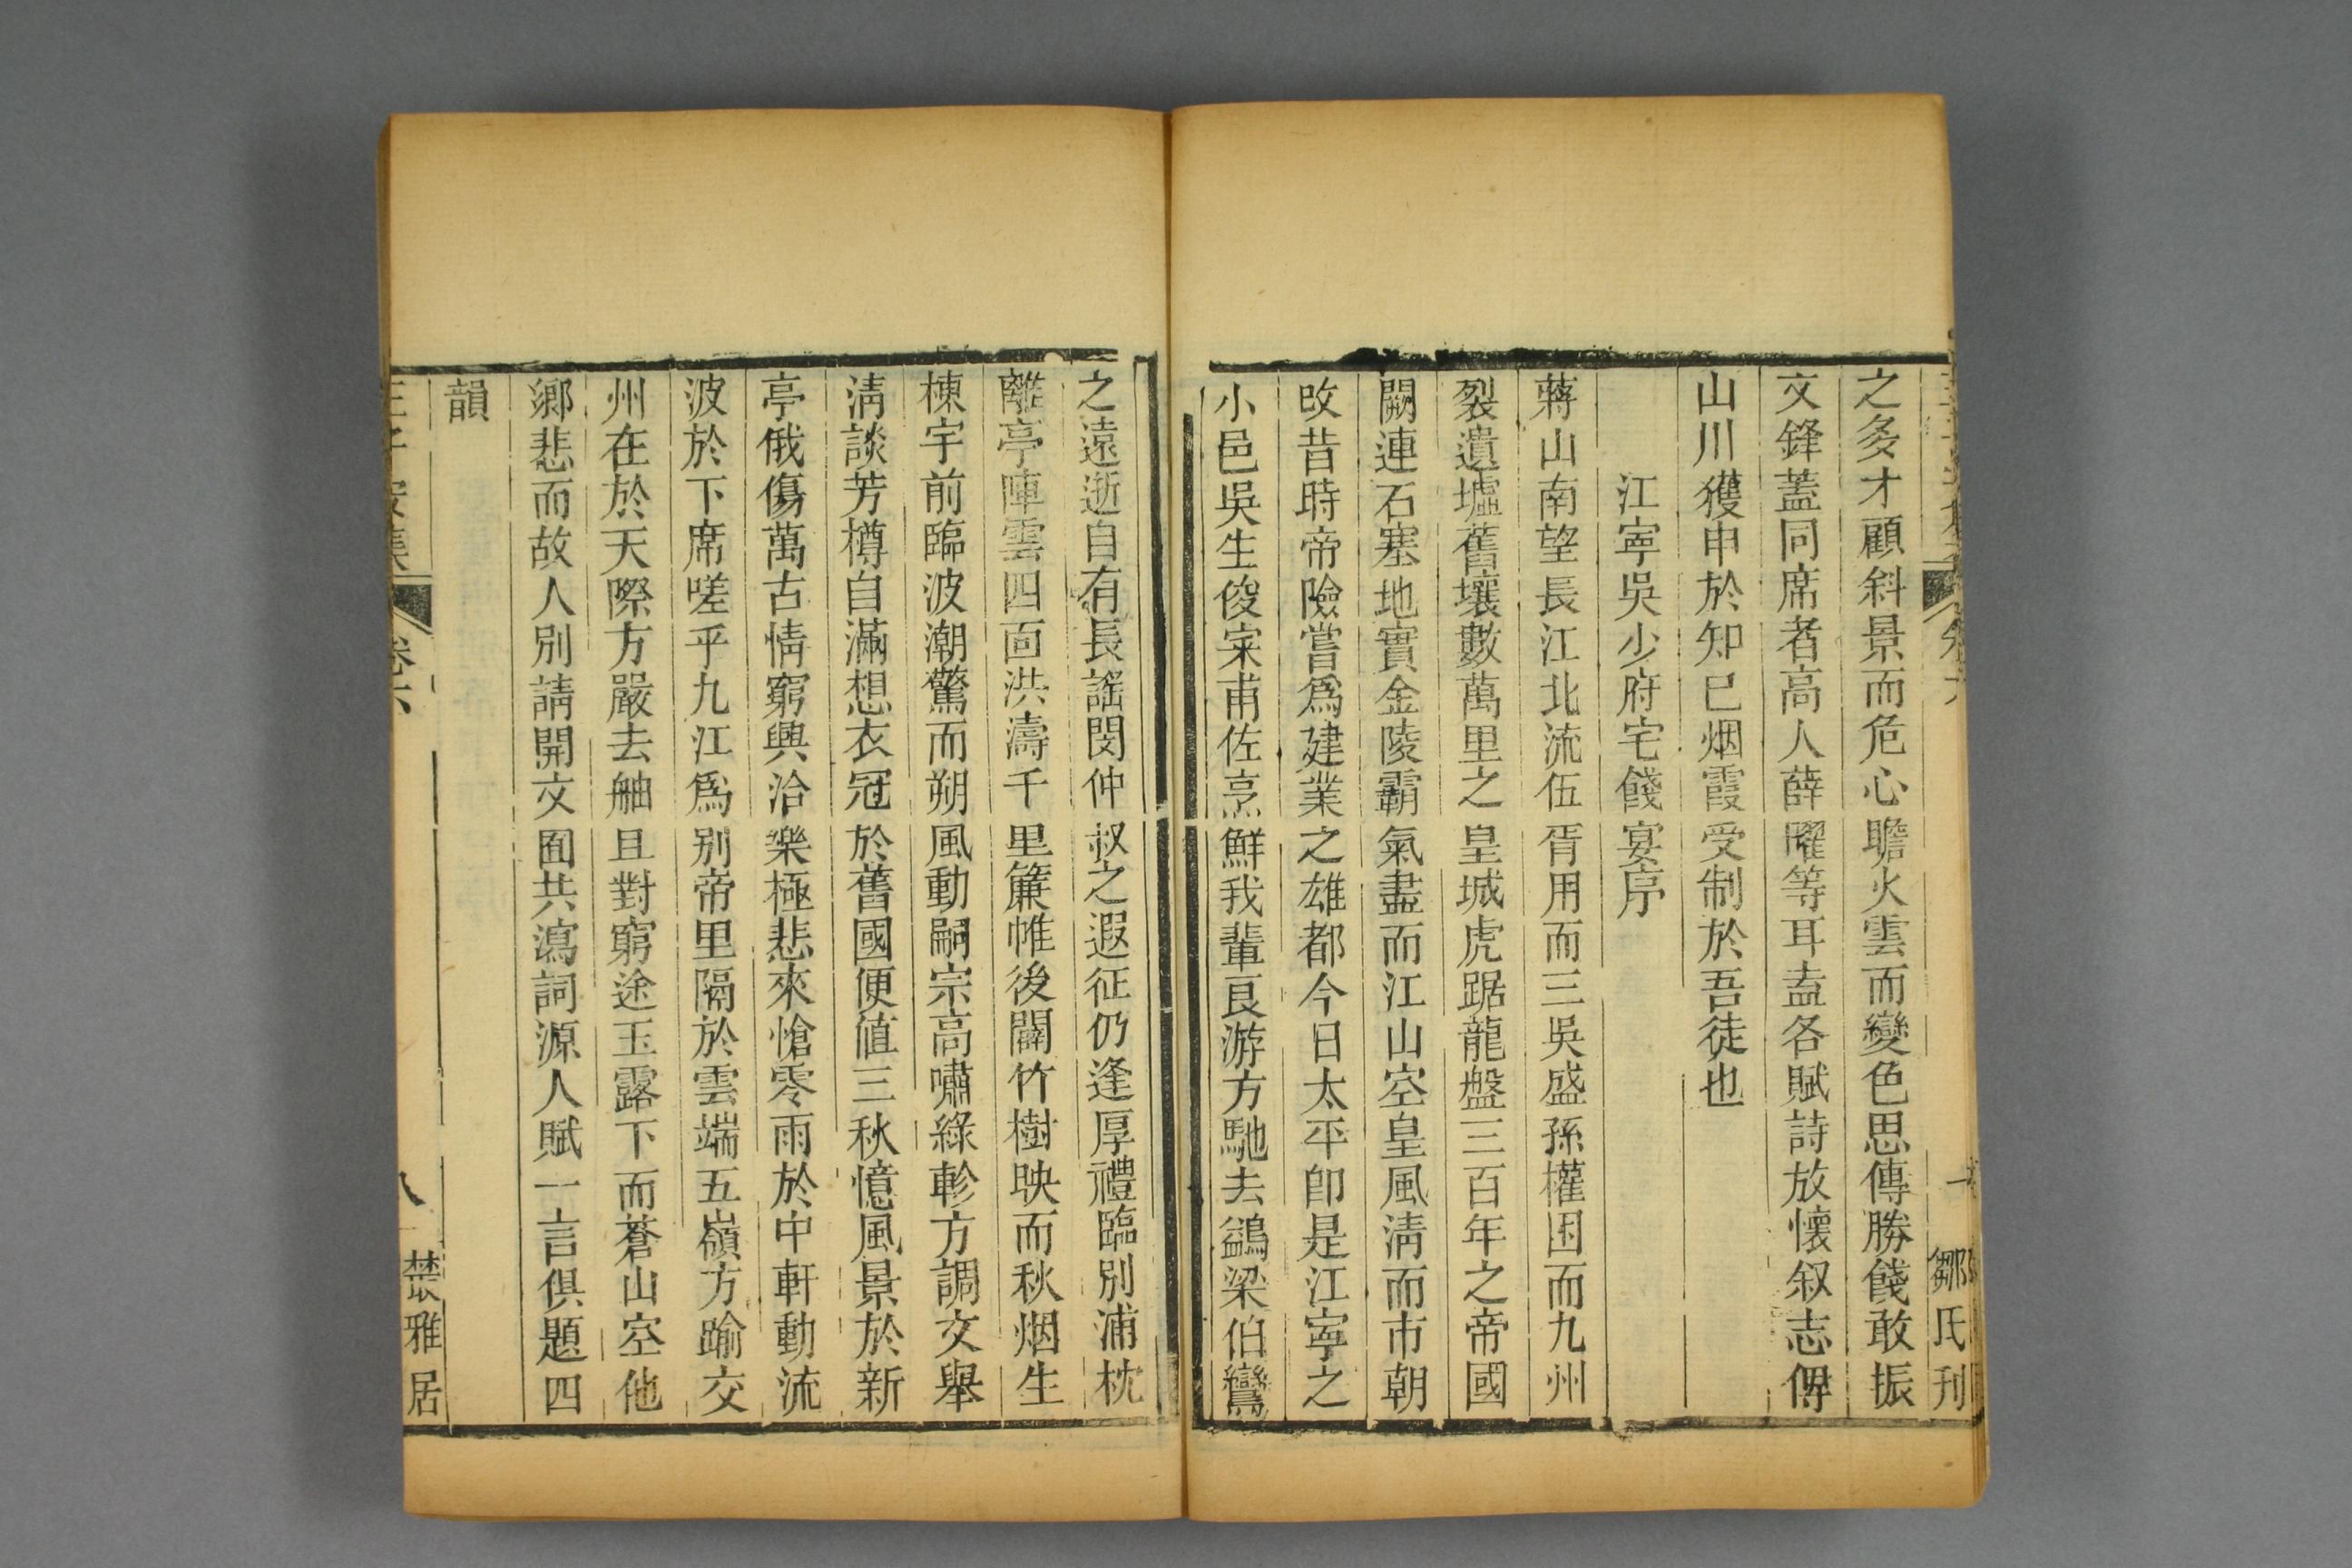 之多才顧斜景而危心瞻火雲而變色思傳勝餞敢振
文鋒蓋同席者高人薛曜等耳盍各賦詩放懷叙志俾
山川獲申於知已烟霞受制於吾徒也
江寧吳少府宅餞宴序
蔣山南望長江北流伍胥用而三吳盛孫權困而九州
裂遺墟舊壤數萬里之皇城虎踞龍盤三百年之帝國
闕連石塞地實金陵霸氣盡而江山空皇風淸而市朝
改昔時帝險嘗爲建業之雄都今日太平卽是江寧之
小邑吳生俊寀甫佐烹鮮我輩良游方馳去鷁梁伯鸞
之遠逝自有長謠閔仲叔之遐征仍逢厚禮臨別浦枕
離亭陣雲四面洪濤千里簾帷後闢竹樹映而秋烟生
棟宇前臨波潮驚而朔風動嗣宗高嘯綠軫方調文舉
淸談芳樽自滿想衣冠於舊國便值三秋憶風景於新
亭俄傷萬古情窮興洽樂極悲來愴零雨於中軒動流
波於下席嗟乎九江爲別帝里隔於雲端五嶺方踰交
州在於天際方嚴去舳且對窮途玉露下而蒼山空他
鄉悲而故人別請開文囿共瀉詞源人賦一言俱題四
韻
鄒氏刊
王子安集 卷六 八 叢雅居